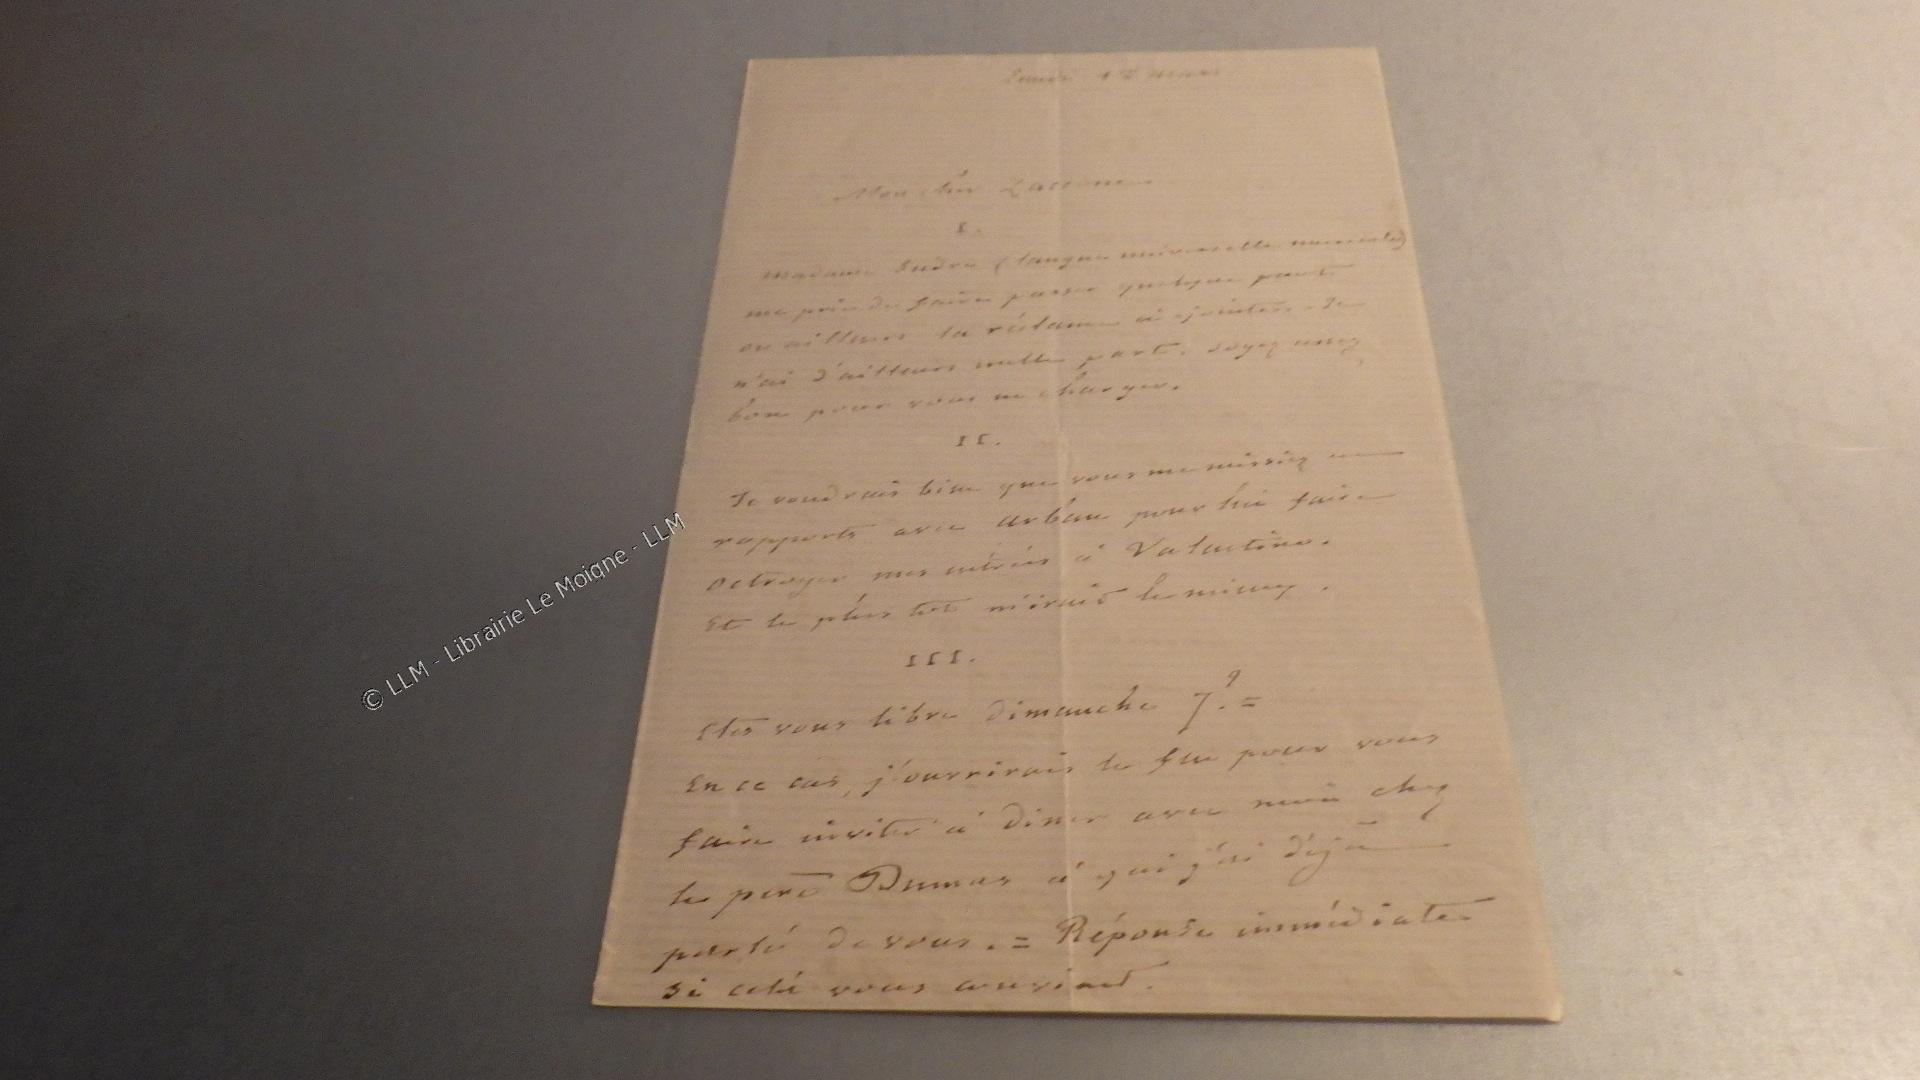 Lundi 15 mars
Mon cher Lacome
I.
Madame Sudre (langue universelle musicale)
me prie de faire passer quelque part
ou ailleurs la réclame ci-jointes. Je
n'ai d'ailleurs nulle part. Soyez assez
bon pour vous en charger.
II.
Je voudrais bien que vous me missiez en
rapports avec Arban pour lui faire
octroyer mes entrées à Valentino.
Et le plus tôt m'irait le mieux.
III.
Etes vous libre dimanche 7. =
En ce cas, j'ouvrirais le feu pour vous
faire inviter à diner avec moi chez
le père Dumas à qui j'ai déjà
parlé de vous. = Réponse immédiate
si cela vous convient.
© LLM - Librairie Le Moigne - LLM